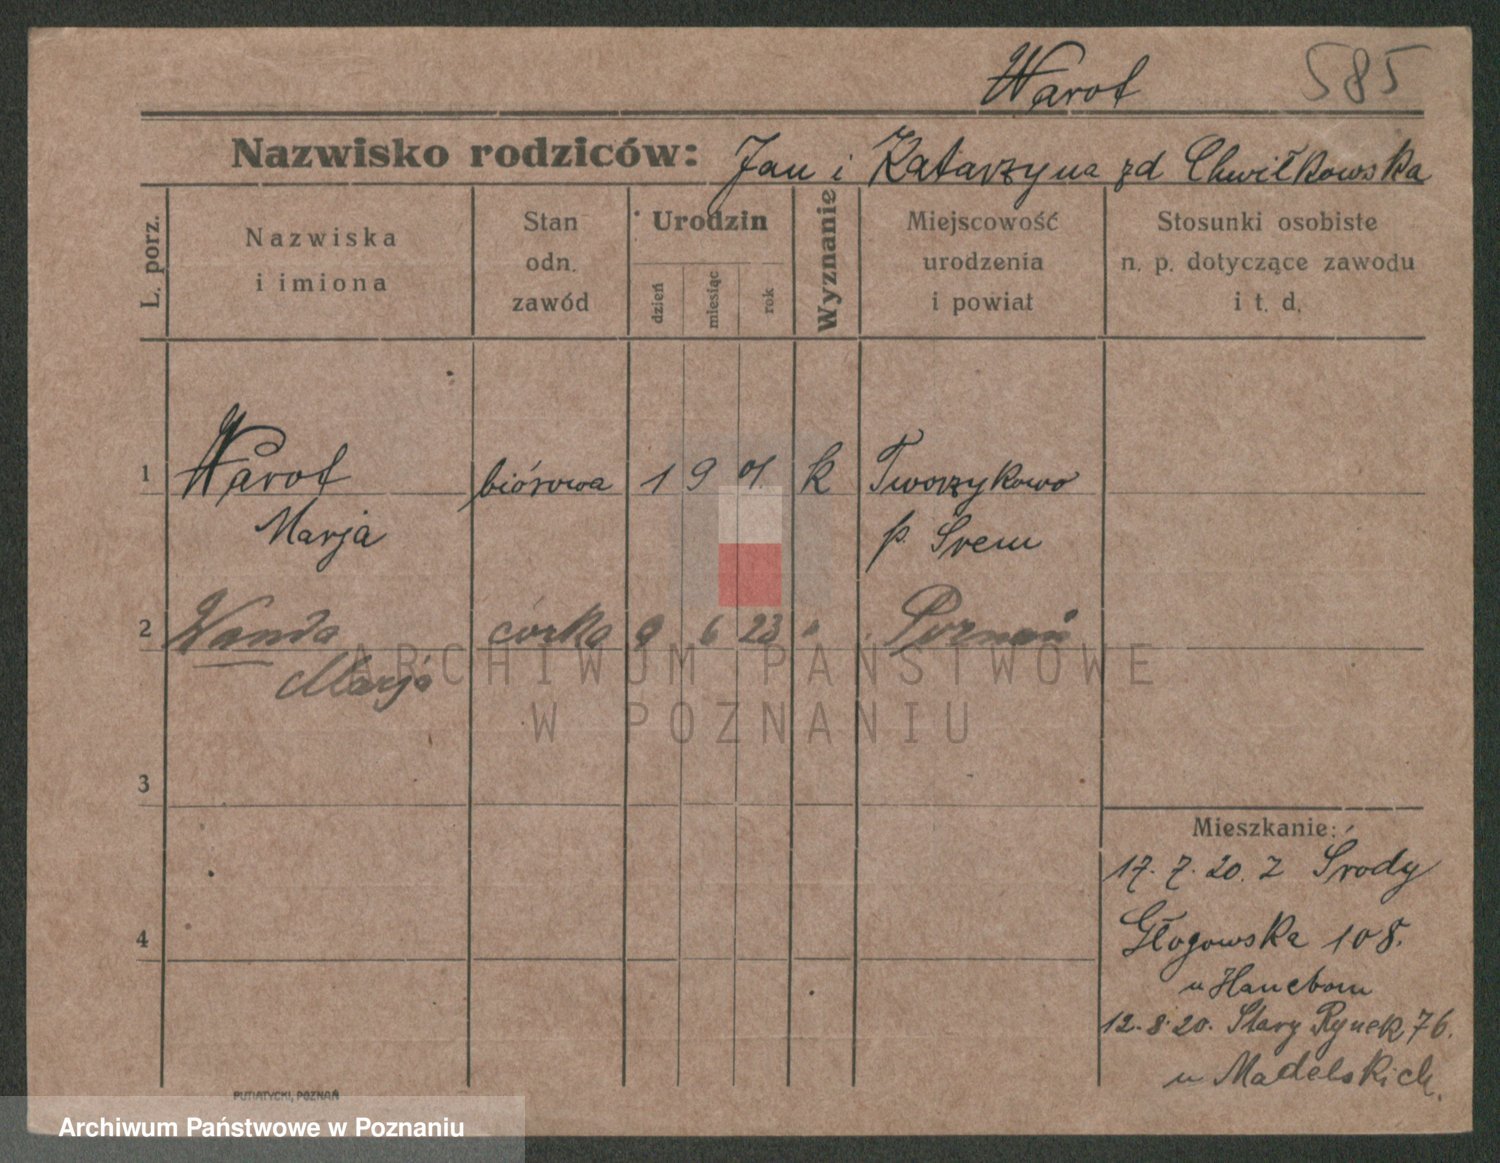 Warot 585
Nazwisko rodziców: Jan i Katarzyna zd Chwiłkowska
L. porz.
Nazwiska
i imiona
Stan
odn.
zawód
Urodzin
dzień
miesiąc
rok
Wyznanie
Miejscowość
urodzenia
i powiat
Stosunki osobiste
n. p. dotyczące zawodu
i t. d.
1 Warot biórowa 1 9 01. k Tworzykowo
Marja p. Śrem
2 Wanda córka 9 6 23 " Poznań
Marja
ARCHIWUM PAŃSTWOWE
W POZNANIU
3
Mieszkanie:
17. 7. 20. z Środy
4 Głogowska 108.
u
12. 8. 20. Stary Rynek 76.
u Madelskich.
PUTIATYCKI, POZNAŃ
Archiwum Państwowe w Poznaniu